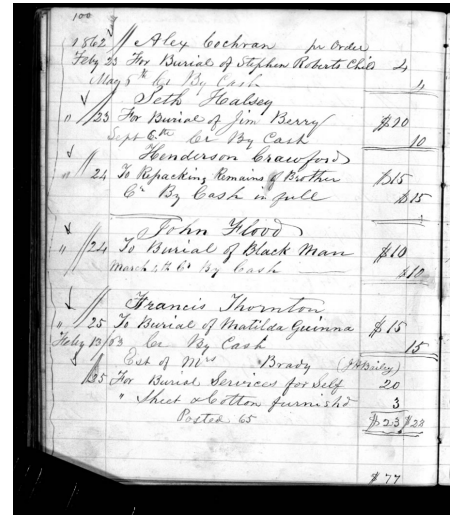 100
1862 // Alex Cochran pr Order
Feby 23 For Burial of Stephen Roberts Child 4
May 8th Cr By Cash 4
Seth Halsey
" // 23 For Burial of Jim Berry $20
Sept 6th Cr By Cash 10
Henderson Crawford
" // 24 To Repacking Remains of Brother $15
Cr By Cash in full $15
John Flood
" // 24 To Burial of Black Man $10
March 4th Cr By Cash $10
Francis Thornton
" // 25 To Burial of Matilda Guinna $15
Feby 13/63 Cr By Cash 15
Est of Mrs Brady
// 25 For Burial Services for Self 20
" Sheet & Cotton furnishd 3
Posted 65 $23 $23
$77